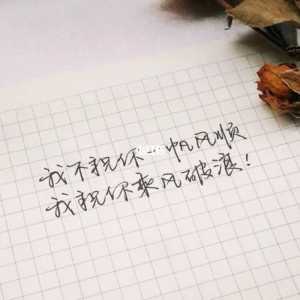 我不祝你一帆风顺
我祝你乘风破浪！